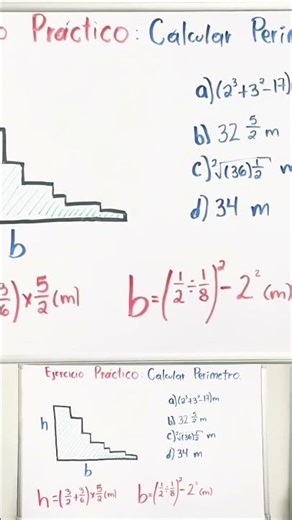 o Práctico: Calcular Perím
a)(2³+3²-17)
b) 32 5/2 m
c) ²√(36) 1/2 m
d) 34 m
b
3/6) x 5/2 (m)
b = (1/2 ÷ 1/8)² - 2² (m)
Ejercicio Práctico: Calcular Perímetro.
a)(2³+3²-17)m
h
b) 32 5/2 m
c) ²√(36) 1/2 m
d) 34 m
b
h = (3/2 + 3/6) x 5/2 (m)
b = (1/2 ÷ 1/8)² - 2² (m)